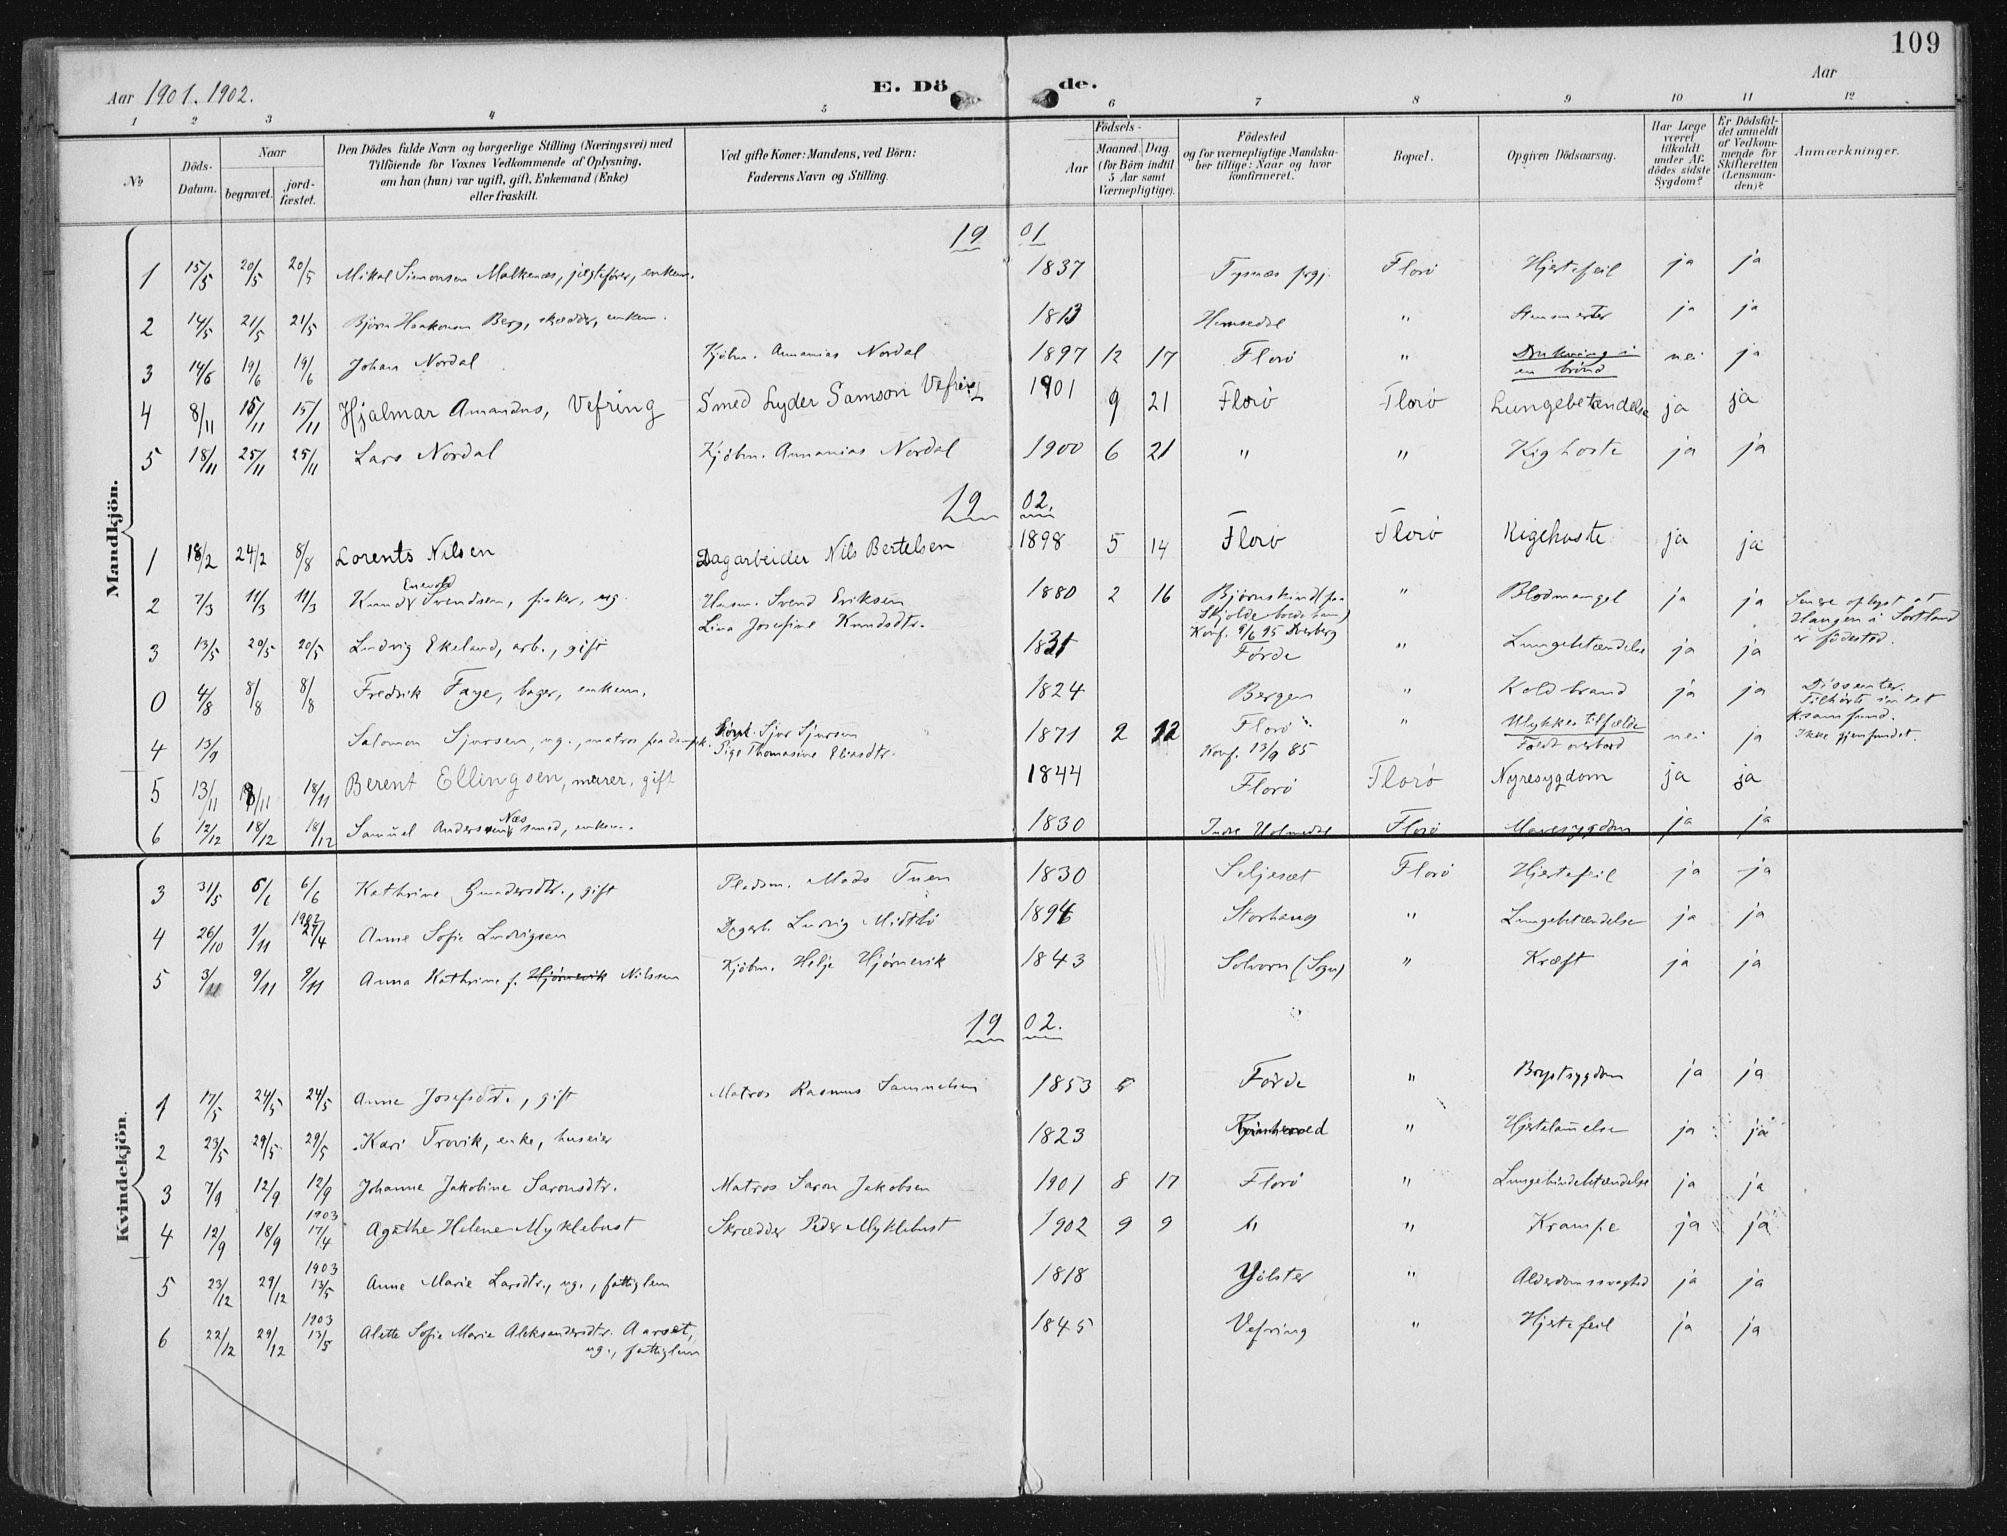 109
Aar 1901. 1902.
E. Dö de.
Aar
1 2 3 4 5 6 7 8 9 10 11 12
No
Döds-Datum.
Naar
begravet.
jord-fæstet.
Den Dödes fulde Navn og borgerlige Stilling (Næringsvei) med
Tilföiende for Voxnes Vedkommende af Oplysning,
om han (hun) var ugift, gift, Enkemand (Enke)
eller fraskilt.
Ved gifte Koner: Mandens, ved Börn:
Faderens Navn og Stilling.
Födsels-
Aar
Maaned. Dag.
(for Börn indtil
5 Aar samt
Værnepligtige).
Födested
og for værnepligtige Mandska-
ber tillige: Naar og hvor
konfirmeret.
Bopæl.
Opgiven Dödsaarsag.
Har Læge
været
tilkaldt
under Af-
dödes sidste
Sygdom?
Er Dödsfal-
det anmeldt
af Vedkom-
mende for
Skifteretten
(Lensman-
den)?
Anmærkninger.
Mandkjön.
19 01
1 15/5 20/5 20/5 Mikal Simonsen Malkenæs, jægtefører, enkem. 1837 Tysnæs prgj. Florö Hjertefeil ja ja
2 14/5 21/5 21/5 Björn Haakonsen Berg, skrædder, enkem. 1813 Hemsedal " ja ja
3 14/6 19/6 19/6 Johan Nordal Kjöbm. Annanias Nordal 1897 12 17 Florö " Drukning i nei ja
en brönd
4 8/11 15/11 15/11 Hjalmar Amandus, Vefring Smed Lyder Samson Vefring 1901 9 21 Florö Florö Lungebetændelse ja ja
5 18/11 25/11 25/11 Lars Nordal Kjöbm. Annanias Nordal 1900 6 21 " " Kighoste ja ja
19 02.
1 18/2 24/2 8/8 Lorents Nilsen Dagarbeider Nils Bertelsen 1898 5 14 Florö Florö Kigehoste ja ja
Enevold
2 7/3 11/3 11/3 Knud Svendsen, fisker, ug. Husm. Svend Eriksen 1880 2 16 Björnskind (paa " Blodmangel ja ja Senere oplyst at
Lina Josefine Knudsdtr. Konf. 9/6 95 Dverberg Haugen i Sortland
er födested.
3 13/5 20/5 20/5 Ludvig Ekeland, arb., gift 1831 Førde " Lungebetændelse ja ja
0 4/8 8/8 8/8 Fredrik Faye, bager, enkem. 1824 Bergen " Koldbrand ja ja Dissenter.
Tilhörte intet
samfund.
4 13/9 Salomon Sjursen, ug., matros Sjur Sjursen 1871 2 12 Florö " Ulykkestilfælde nei ja Ikke gjenfundet.
Pige Thomasine Eliasdtr. Konf. 13/9 85 Faldt overbord
5 13/11 18/11 18/11 Berent Ellingsen, murer, gift 1844 Florö Florö Nyresygdom ja ja
6 12/12 18/12 18/12 Samuel Andersen Næs smed, enkem. 1830 Indre Holmedal Florö Mavesygdom ja ja
Kvindekjön.
3 31/5 6/6 6/6 Kathrine Gundersdtr., gift Pladsm. Mads Tuen 1830 Seljesæt Florö Hjertefeil ja ja
1902
4 26/10 1/11 27/4 Anne Sofie Ludvigsen Dagarb. Ludvig Midtbö 1894 Storhaug " Lungebetændelse ja ja
5 3/11 9/11 9/11 Anna Kathrine f. Hjörnevik Nilssen Kjöbm. Helje Hjörnevik 1843 Solvorn (Sogn) " Kræft ja ja
19 02.
1 17/5 24/5 24/5 Anne Josefsdt., gift Matros Rasmus Samuelsen 1853 5 Førde " Brystsygdom ja ja
2 23/5 29/5 29/5 Kari Trovik, enke, huseier 1823 Kvinherred " Hjertelammelse ja ja
3 7/9 12/9 12/9 Johanne Jakobine Saronsdtr. Matros Saron Jakobsen 1901 8 17 Florö " Lungebindebetændelse ja ja
1903
4 12/9 18/9 17/4 Agathe Helene Myklebust Skrædder Peder Myklebust 1902 9 9 " " Krampe ja ja
1903
5 23/12 29/12 13/5 Anne Marie Larsdtr., ug., fattiglem 1818 Jölster " Alderdomssvaghed ja ja
1903
6 22/12 29/12 13/5 Alette Sofie Marie Aleksandersdtr. Aarset, 1845 Vefring " Hjertefeil ja ja
ug., fattiglem